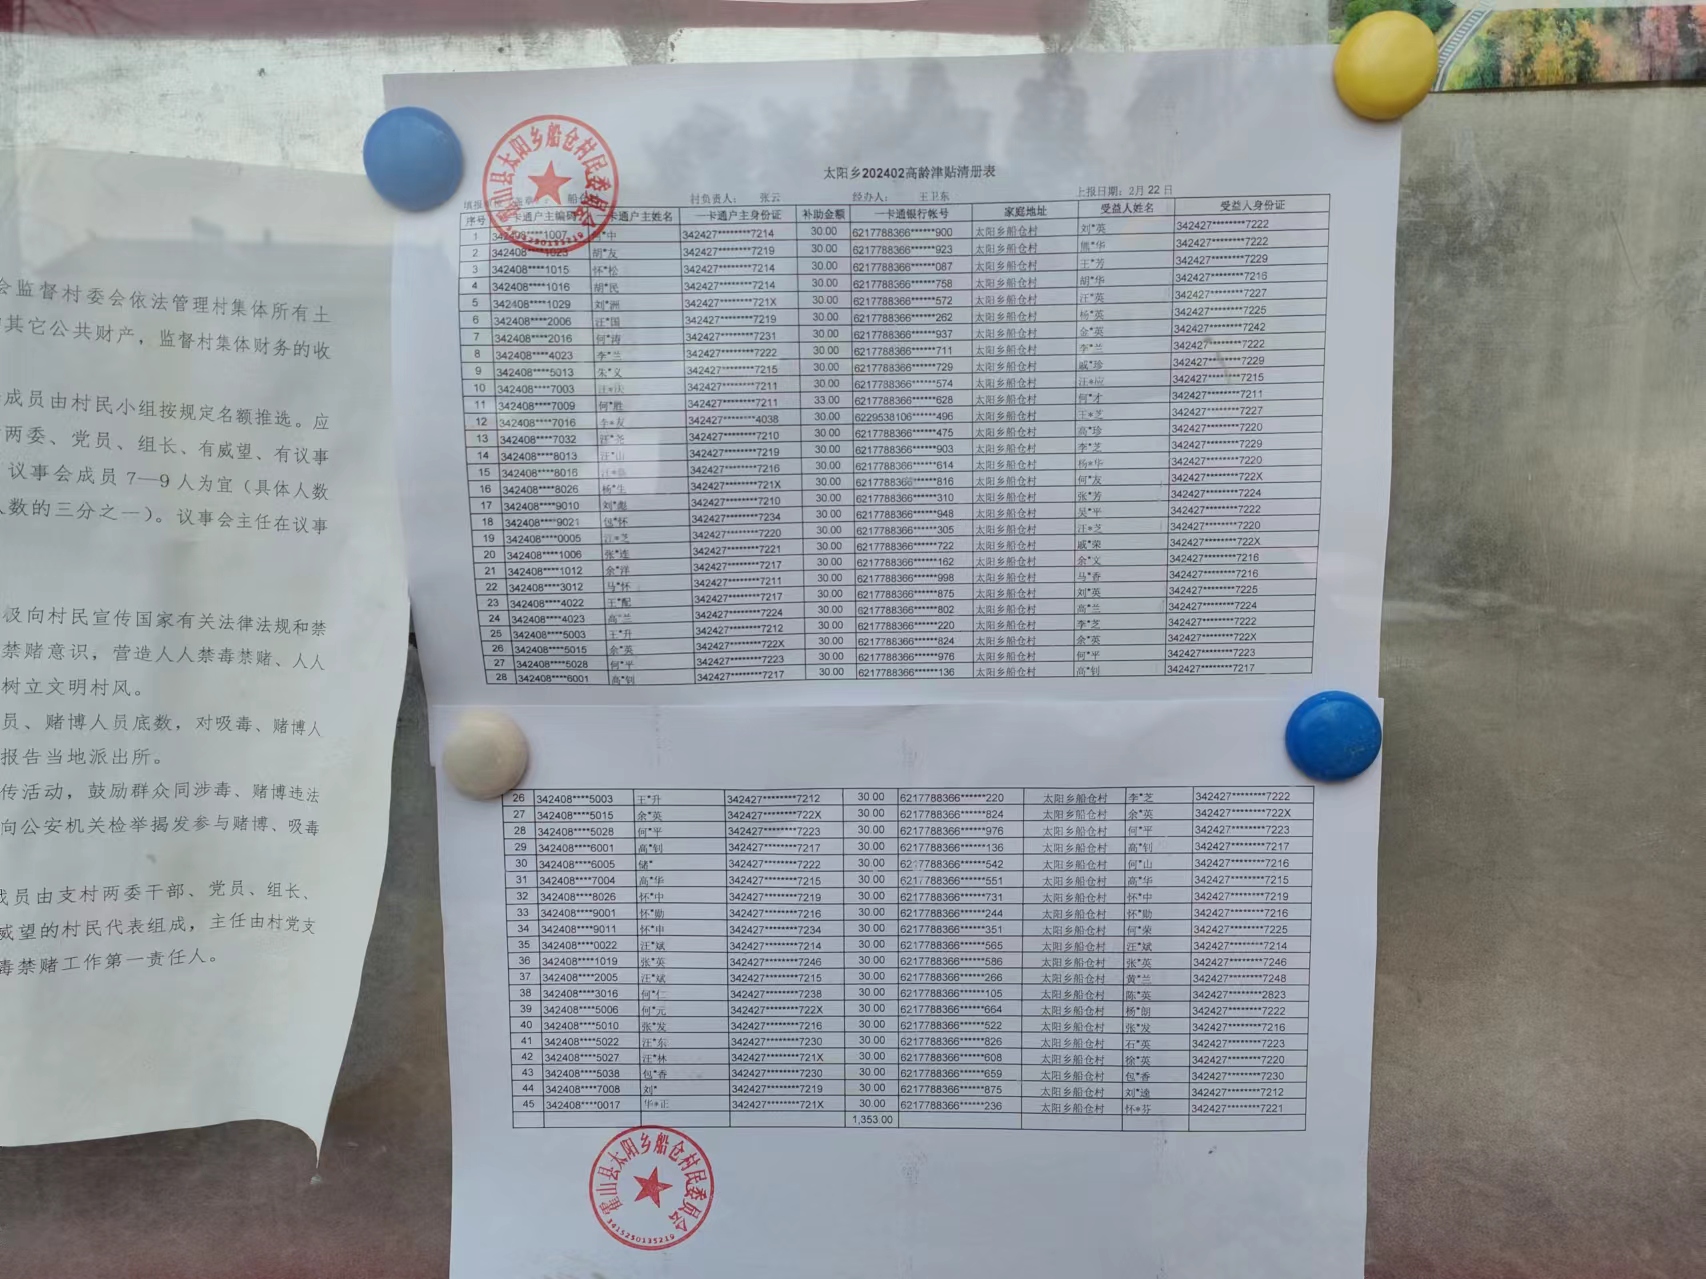 会监督村委会依法管理村集体所有土
其它公共财产，监督村集体财务的收
成员由村民小组按规定名额推选。应
两委、党员、组长、有威望、有议事
议事会成员7—9人为宜（具体人数
人数的三分之一）。议事会主任在议事
极向村民宣传国家有关法律法规和禁
禁赌意识，营造人人禁毒禁赌、人人
树立文明村风。
员、赌博人员底数，对吸毒、赌博人
报告当地派出所。
传活动，鼓励群众同涉毒、赌博违法
向公安机关检举揭发参与赌博、吸毒
成员由支村两委干部、党员、组长、
威望的村民代表组成，主任由村党支
毒禁赌工作第一责任人。
霍山县太阳乡船仓村民委员会
太阳乡202402高龄津贴清册表
村负责人： 张云 经办人： 王卫东 上报日期：2月 22 日
序号 一卡通户主编码 一卡通户主姓名 一卡通户主身份证 补助金额 一卡通银行帐号 家庭地址 受益人姓名 受益人身份证
1 342408****1007 *中 342427********7214 30.00 6217788366******900 太阳乡船仓村 刘*英 342427********7222
2 342408****1023 胡*友 342427********7219 30.00 6217788366******923 太阳乡船仓村 熊*华 342427********7222
3 342408****1015 怀*松 342427********7214 30.00 6217788366******087 太阳乡船仓村 王*芳 342427********7229
4 342408****1016 胡*民 342427********7214 30.00 6217788366******758 太阳乡船仓村 胡*华 342427********7216
5 342408****1029 刘*洲 342427********721X 30.00 6217788366******572 太阳乡船仓村 汪*英 342427********7227
6 342408****2006 汪*国 342427********7219 30.00 6217788366******262 太阳乡船仓村 杨*英 342427********7225
7 342408****2016 何*涛 342427********7231 30.00 6217788366******937 太阳乡船仓村 金*英 342427********7242
8 342408****4023 李*兰 342427********7222 30.00 6217788366******711 太阳乡船仓村 李*兰 342427********7222
9 342408****5013 朱*义 342427********7215 30.00 6217788366******729 太阳乡船仓村 戚*珍 342427********7229
10 342408****7003 汪*庆 342427********7211 30.00 6217788366******574 太阳乡船仓村 汪*应 342427********7215
11 342408****7009 何*胜 342427********7211 33.00 6217788366******628 太阳乡船仓村 何*才 342427********7211
12 342408****7016 李*友 342427********4038 30.00 6229538106******496 太阳乡船仓村 王*芝 342427********7227
13 342408****7032 汪*尧 342427********7210 30.00 6217788366******475 太阳乡船仓村 高*珍 342427********7220
14 342408****8013 汪*山 342427********7219 30.00 6217788366******903 太阳乡船仓村 李*芝 342427********7229
15 342408****8016 汪* 342427********7216 30.00 6217788366******614 太阳乡船仓村 杨*华 342427********7220
16 342408****8026 杨*生 342427********721X 30.00 6217788366******816 太阳乡船仓村 何*友 342427********722X
17 342408****9010 刘*彪 342427********7210 30.00 6217788366******310 太阳乡船仓村 张*芳 342427********7224
18 342408****9021 包*怀 342427********7234 30.00 6217788366******948 太阳乡船仓村 吴*平 342427********7222
19 342408****0005 汪*芝 342427********7220 30.00 6217788366******305 太阳乡船仓村 汪*芝 342427********7220
20 342408****1006 张*连 342427********7221 30.00 6217788366******722 太阳乡船仓村 戚*荣 342427********722X
21 342408****1012 余*洋 342427********7217 30.00 6217788366******162 太阳乡船仓村 余*义 342427********7216
22 342408****3012 马*怀 342427********7211 30.00 6217788366******998 太阳乡船仓村 马*香 342427********7216
23 342408****4022 王*配 342427********7217 30.00 6217788366******875 太阳乡船仓村 刘*英 342427********7225
24 342408****4023 高*兰 342427********7224 30.00 6217788366******802 太阳乡船仓村 高*兰 342427********7224
25 342408****5003 王*升 342427********7212 30.00 6217788366******220 太阳乡船仓村 李*芝 342427********7222
26 342408****5015 余*英 342427********722X 30.00 6217788366******824 太阳乡船仓村 余*英 342427********722X
27 342408****5028 何*平 342427********7223 30.00 6217788366******976 太阳乡船仓村 何*平 342427********7223
28 342408****6001 高*钊 342427********7217 30.00 6217788366******136 太阳乡船仓村 高*钊 342427********7217
26 342408****5003 王*升 342427********7212 30.00 6217788366******220 太阳乡船仓村 李*芝 342427********7222
27 342408****5015 余*英 342427********722X 30.00 6217788366******824 太阳乡船仓村 余*英 342427********722X
28 342408****5028 何*平 342427********7223 30.00 6217788366******976 太阳乡船仓村 何*平 342427********7223
29 342408****6001 高*钊 342427********7217 30.00 6217788366******136 太阳乡船仓村 高*钊 342427********7217
30 342408****6005 储* 342427********7222 30.00 6217788366******542 太阳乡船仓村 何*山 342427********7216
31 342408****7004 高*华 342427********7215 30.00 6217788366******551 太阳乡船仓村 高*华 342427********7215
32 342408****8026 怀*中 342427********7219 30.00 6217788366******731 太阳乡船仓村 怀*中 342427********7219
33 342408****9001 怀*勋 342427********7216 30.00 6217788366******244 太阳乡船仓村 怀*勋 342427********7216
34 342408****9011 怀*申 342427********7234 30.00 6217788366******351 太阳乡船仓村 何*荣 342427********7225
35 342408****0022 汪*斌 342427********7214 30.00 6217788366******565 太阳乡船仓村 汪*斌 342427********7214
36 342408****1019 张*英 342427********7246 30.00 6217788366******586 太阳乡船仓村 张*英 342427********7246
37 342408****2005 汪*斌 342427********7215 30.00 6217788366******266 太阳乡船仓村 黄*兰 342427********7248
38 342408****3016 何*仁 342427********7238 30.00 6217788366******105 太阳乡船仓村 陈*英 342427********2823
39 342408****5006 何*元 342427********722X 30.00 6217788366******664 太阳乡船仓村 杨*朗 342427********7222
40 342408****5010 张*发 342427********7216 30.00 6217788366******522 太阳乡船仓村 张*发 342427********7216
41 342408****5022 汪*东 342427********7230 30.00 6217788366******826 太阳乡船仓村 石*英 342427********7223
42 342408****5027 汪*林 342427********721X 30.00 6217788366******608 太阳乡船仓村 徐*英 342427********7220
43 342408****5038 包*香 342427********7230 30.00 6217788366******659 太阳乡船仓村 包*香 342427********7230
44 342408****7008 刘* 342427********7219 30.00 6217788366******875 太阳乡船仓村 刘*逸 342427********7212
45 342408****0017 华*正 342427********721X 30.00 6217788366******236 太阳乡船仓村 怀*芬 342427********7221
1,353.00
霍山县太阳乡船仓村民委员会
3415250135219